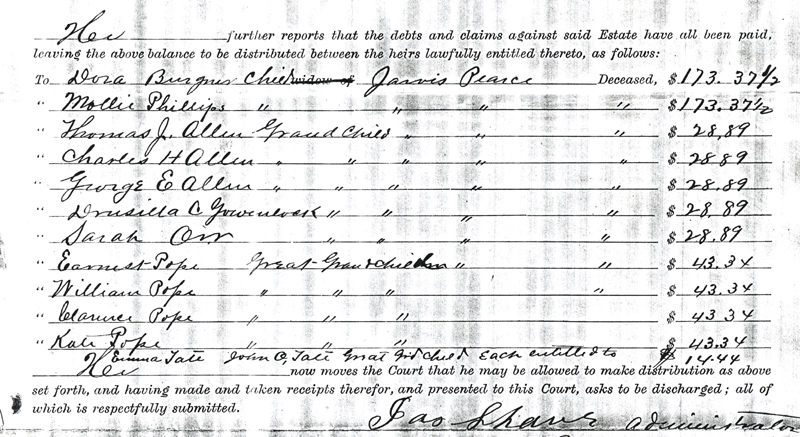 He further reports that the debts and claims against said Estate have all been paid,
leaving the above balance to be distributed between the heirs lawfully entitled thereto, as follows:
To Dora Burgner Child widow of Jarvis Pearce Deceased, $173.37 1/2
" Mollie Phillips " " " " $173.37 1/2
" Thomas J. Allen Grand Child " " " $28.89
" Charles H Allen " " " " $28.89
" George E Allen " " " " $28.89
" Drusilla C Gowenlock " " " " $28.89
" Sarah Orr " " " " $28.89
" Earnest Pope Great-Grandchildren " " $43.34
" William Pope " " " " $43.34
" Clarence Pope " " " $43.34
" Kate Pope " " " $43.34
Emma Tate John C, Tate Great Grd child Each entitled to $14.44
He now moves the Court that he may be allowed to make distribution as above
set forth, and having made and taken receipts therefor, and presented to this Court, asks to be discharged; all of
which is respectfully submitted.
Jas administrator